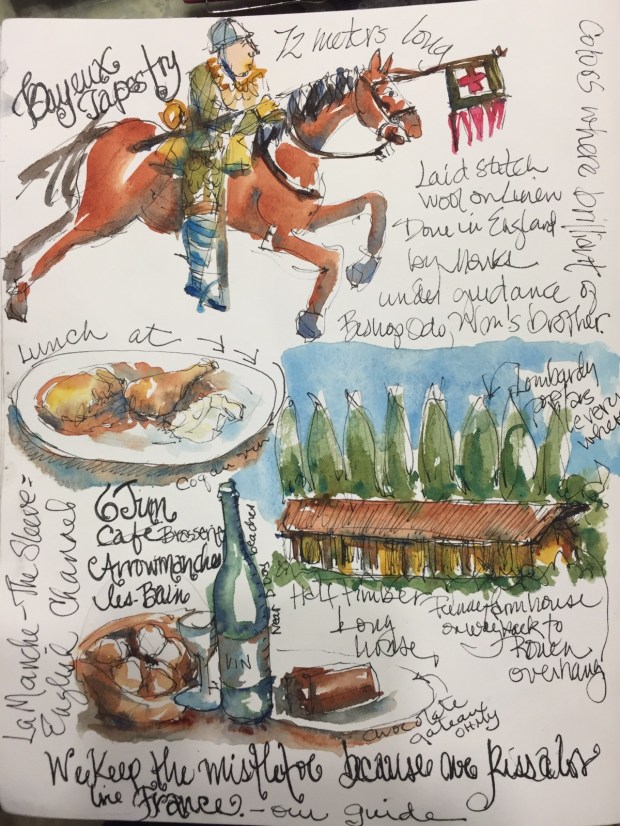 Bayeux
Tapestry
72 meters long
Colors where brillant
Laid stitch
wool on Linen
Done in England
by Monks
under guidance of
Bishop Odo, Wm's brother.
Lunch at
Lombardy
poplars
every
where
Coq au vin
6 Juin
Cafe Brasserie
Arrowmanche
les-Bain
Near D Day Beaches
La Manche - The Sleeve =
English Channel
VIN
Half timber
Long
House
farmhouse
on way back to
Rouen
overhang
Chocolate
gateaux
OH My
We Keep the mistletoe because we kiss alot
in France. - our guide